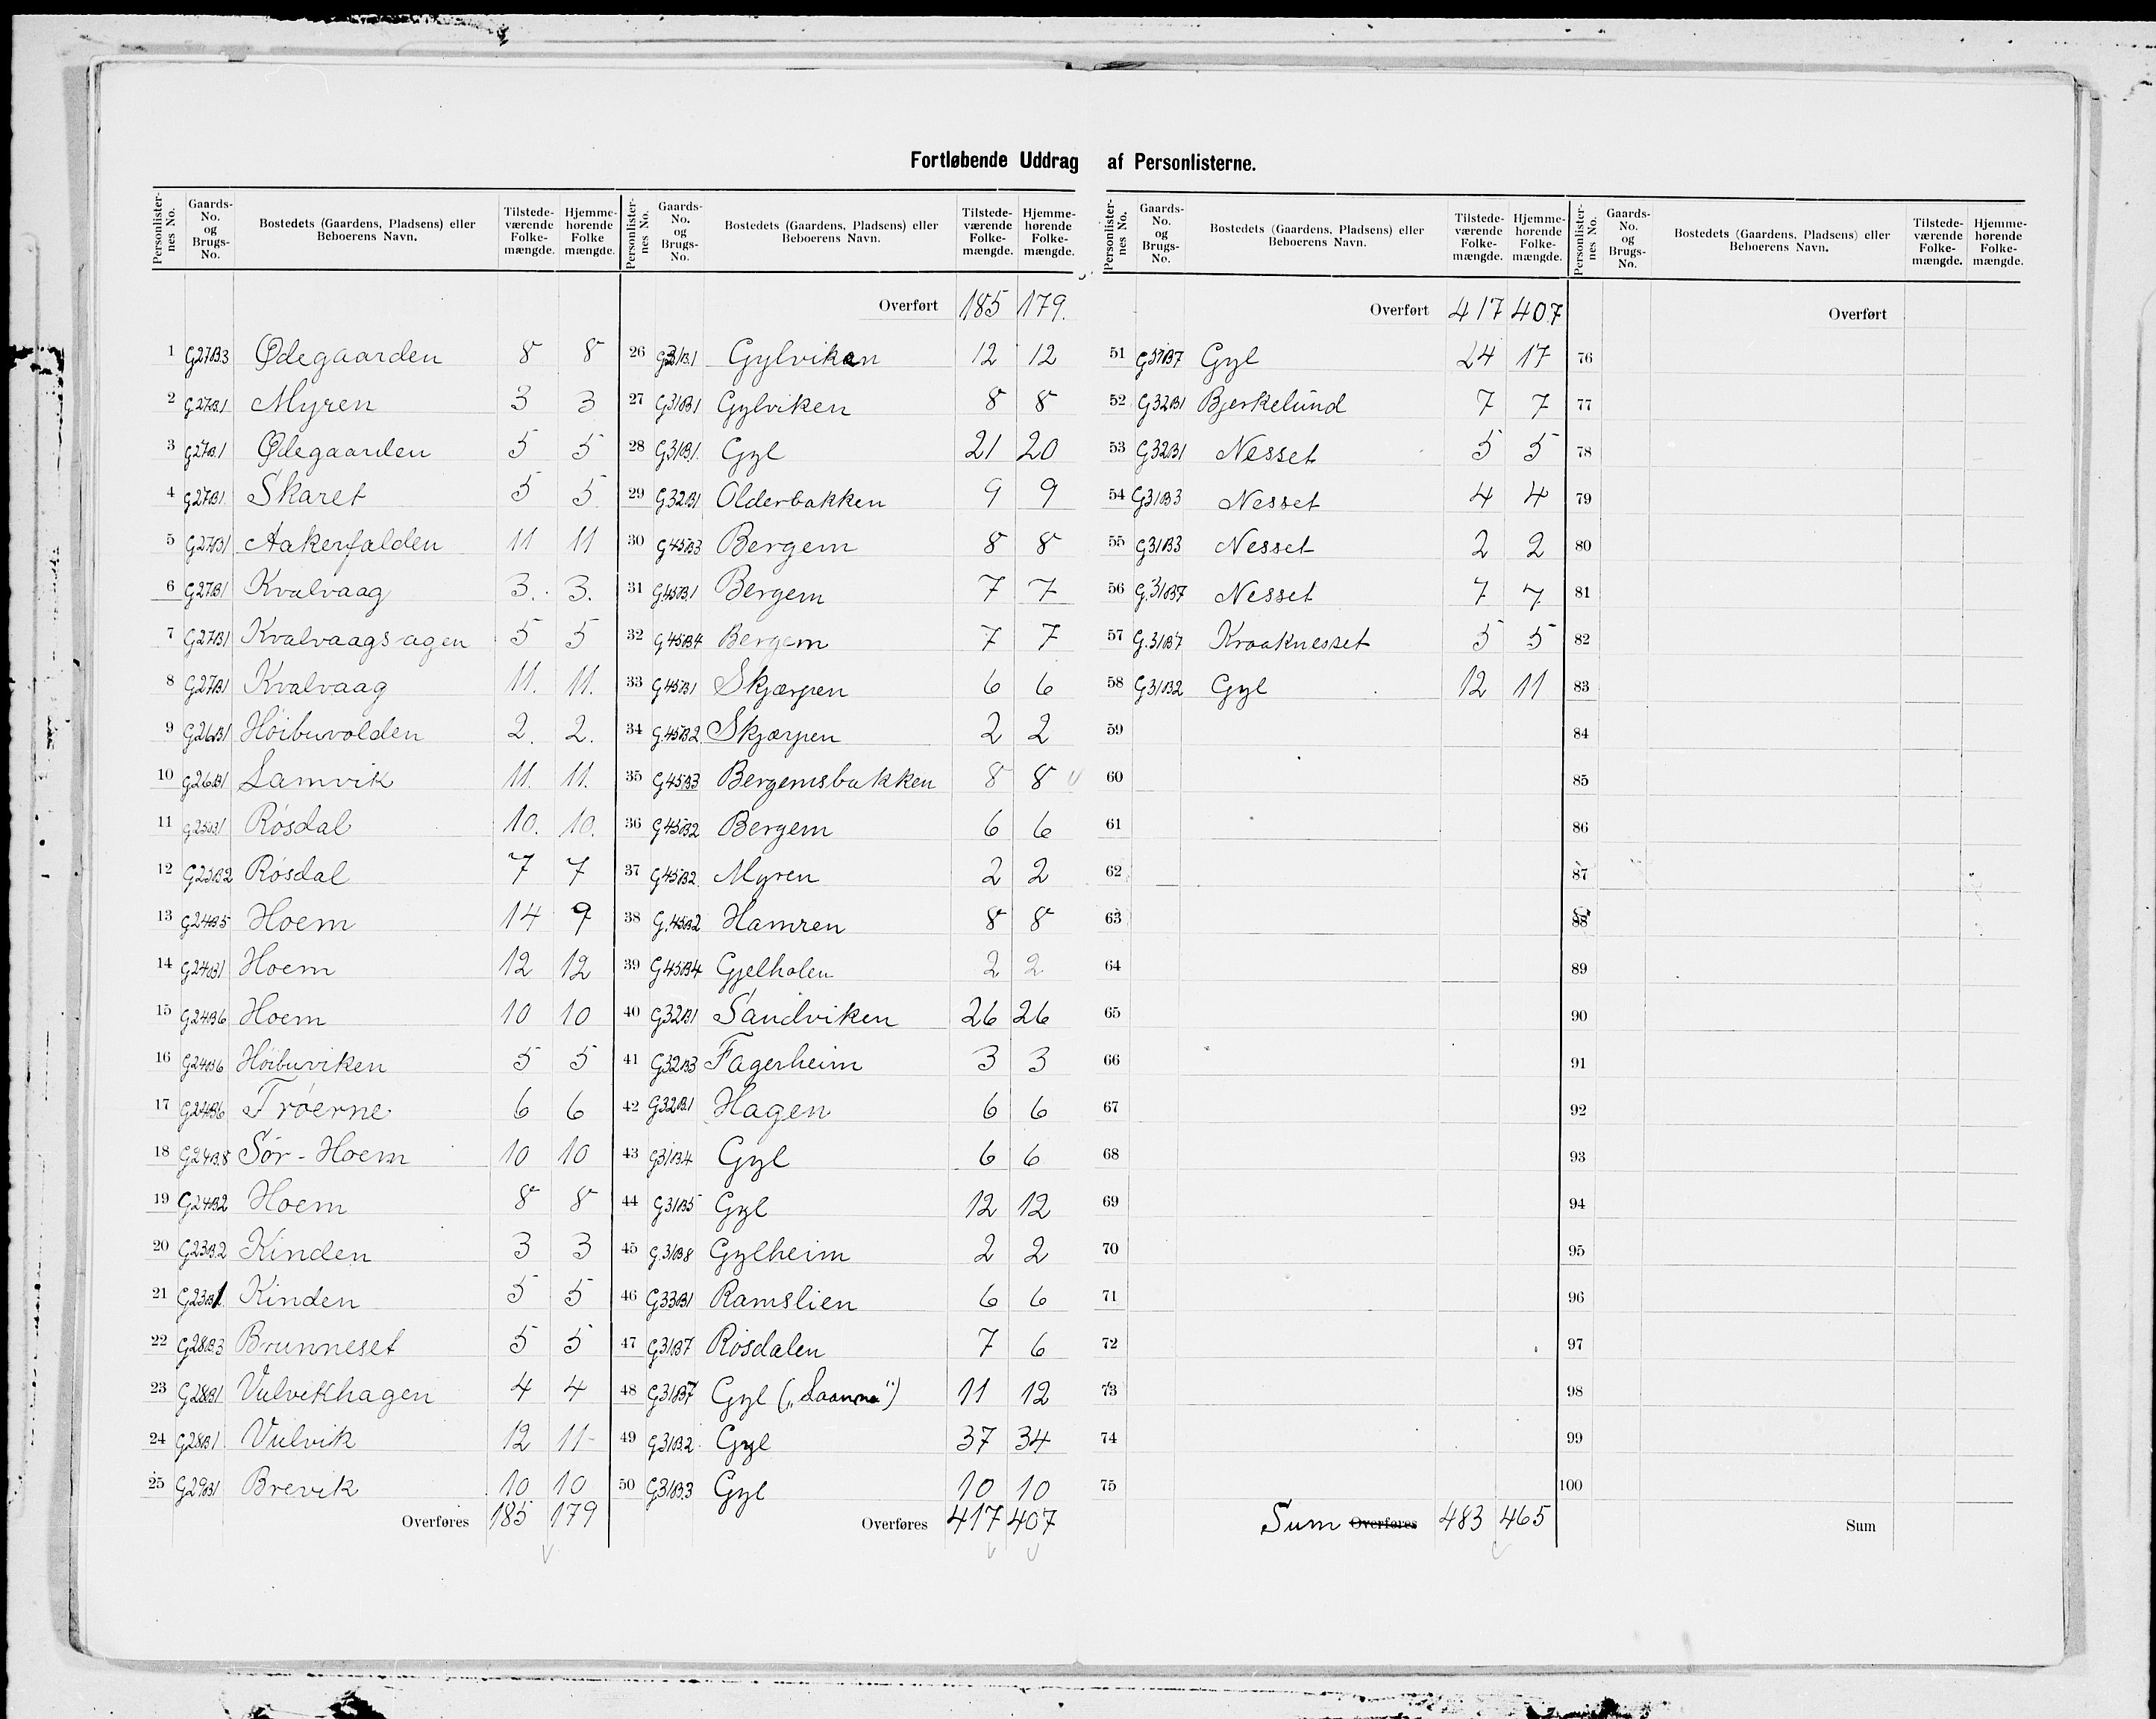 Fortløbende Uddrag af Personlisterne.
Personlister-nes No. Gaards-No. og Brugs-No. Bostedets (Gaardens, Pladsens) eller Beboerens Navn. Tilstede-værende Folke-mængde. Hjemme-hørende Folke mængde.
1 G27B.3 Ødegaarden 8 8
2 G27B.1 Myren 3 3
3 G27B.1 Ødegaarden 5 5
4 G27B1. Skaret 5 5
5 G27B1 Aakerfalden 11 11
6 G27B1 Kvalvaag 3. 3.
7 G27B1 Kvalvaagsagen 5 5
8 G27B1 Kvalvaag 11. 11.
9 G26B1 Høibuvolden 2. 2.
10 G26B1 Lamvik 11. 11.
11 G25B1 Røsdal 10. 10.
12 G25B2 Røsdal 7 7
13 G24B5 Hoem 14 9
14 G24B1 Hoem 12 12
15 G24B6 Hoem 10 10
16 G24B6 Høibuviken 5 5
17 G24B6 Trøerne 6 6
18 G24B.8 Sør-Hoem 10 10
19 G24B2 Hoem 8 8
20 G23B.2 Kinden 3 3
21 G23B1. Kinden 5 5
22 G28B.3 Brunneset 5 5
23 G28B1 Vulvikhagen 4 4
24 G28B1. Vulvik 12 11
25 G29B1 Brevik 10 10
Overføres 185 179
Personlister-nes No. Gaards-No. og Brugs-No. Bostedets (Gaardens, Pladsens) eller Beboerens Navn. Tilstede-værende Folke-mængde. Hjemme-hørende Folke-mængde.
Overført 185 179.
26 G31B.1 Gylviken 12 12
27 G31B1 Gylviken 8 8
28 G31B1. Gyl 21 20
29 G32B1 Olderbakken 9 9
30 G45B3 Bergem 8 8
31 G45B.1 Bergem 7 7
32 G45B4 Bergem 7 7
33 G45B1 Skjærpen 6 6
34 G.45B2. Skjærpen 2 2
35 G45B3 Bergemsbakken 8 8
36 G45B2 Bergem 6 6
37 G45B2. Myren 2 2
38 G.45B2 Hamren 8 8
39 G45B4 Gjelholen 2 2
40 G32B1 Sandviken 26 26
41 G32B3 Fagerheim 3 3
42 G32B.1 Hagen 6 6
43 G31B.4 Gyl 6 6
44 G31B5 Gyl 12 12
45 G.31B8 Gylheim 2 2
46 G33B1 Ramslien 6 6
47 G31B7 Røsdalen 7 6
48 G31B7 Gyl („Saanna") 11 12
49 G31B.2. Gyl 37 34
50 G31B.3 Gyl 10 10
Overføres 417 407
Personlister-nes No. Gaards-No. og Brugs-No. Bostedets (Gaardens, Pladsens) eller Beboerens Navn. Tilstede-værende Folke-mængde. Hjemme-hørende Folke-mængde.
Overført 417 407
51 G31B7 Gyl 24 17
52 G32B1 Bjerkelund 7 7
53 G32B1 Nesset 5 5
54 G31B3 Nesset 4 4
55 G31B3 Nesset 2 2
56 G.31B7 Nesset 7 7
57 G.31B7 Kraaknesset 5 5
58 G31B2 Gyl 12 11
59
60
61
62
63
64
65
66
67
68
69
70
71
72
73
74
75
Sum Overføres 483 465
Personlister-nes No. Gaards-No. og Brugs-No. Bostedets (Gaardens, Pladsens) eller Beboerens Navn. Tilstede-værende Folke-mængde. Hjemme-hørende Folke-mængde.
Overført
76
77
78
79
80
81
82
83
84
85
86
87
88
89
90
91
92
93
94
95
96
97
98
99
100
Sum